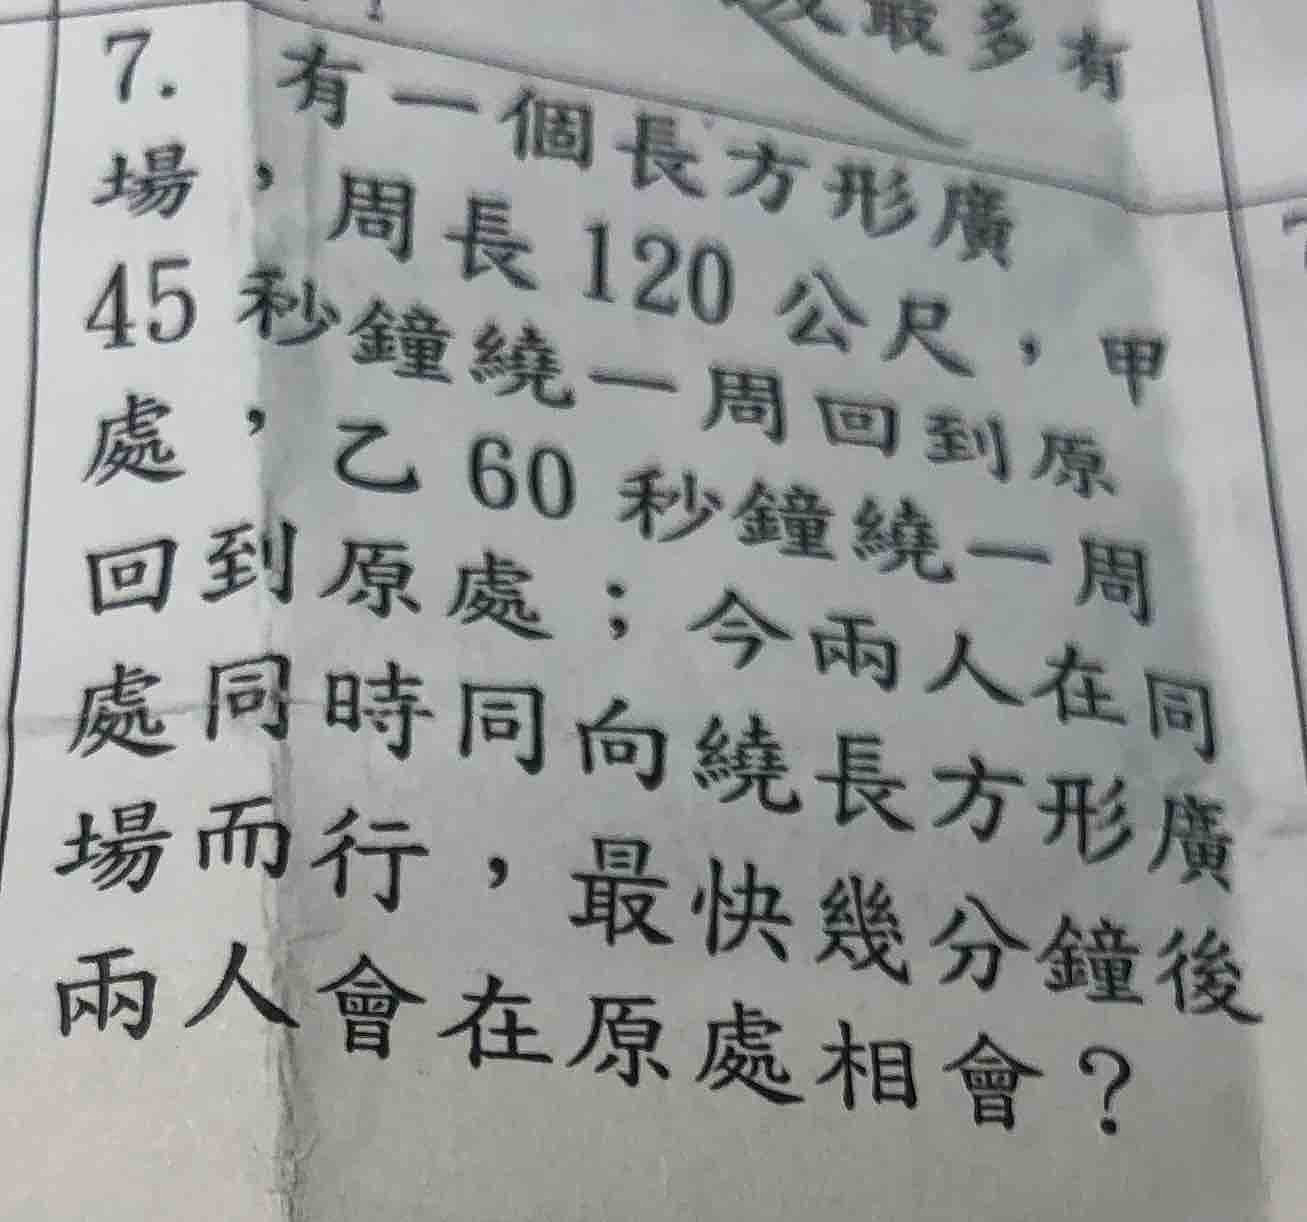 最多有
7. 有一個長方形廣
場，周長 120 公尺，甲
45 秒鐘繞一周回到原
處，乙 60 秒鐘繞一周
回到原處；今兩人在同
處同時同向繞長方形廣
場而行，最快幾分鐘後
兩人會在原處相會？